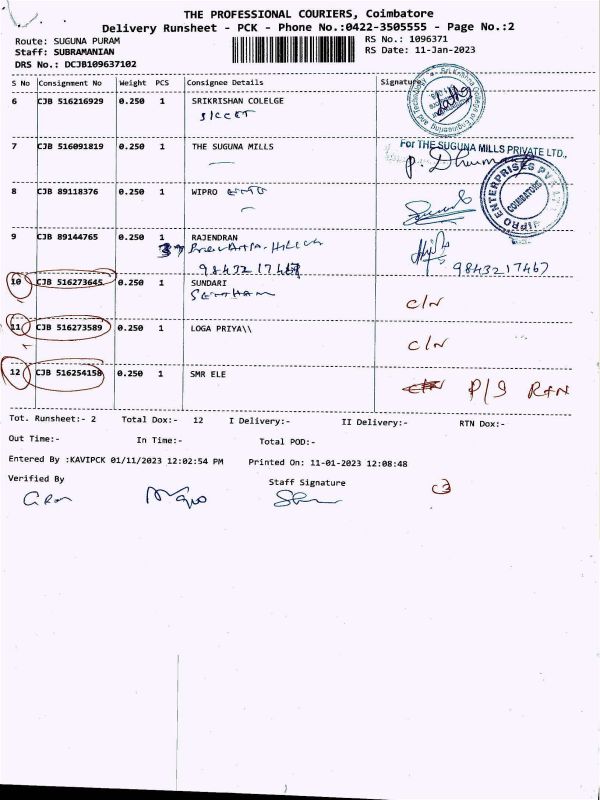 THE PROFESSIONAL COURIERS, Coimbatore
Delivery Runsheet - PCK - Phone No.:0422-3505555 - Page No.:2
Route: SUGUNA PURAM RS No.: 1096371
Staff: SUBRAMANIAN RS Date: 11-Jan-2023
DRS No.: DCJB109637102
S No Consignment No Weight PCS Consignee Details Signature
6 CJB 516216929 0.250 1 SRIKRISHAN COLELGE
7 CJB 516091819 0.250 1 THE SUGUNA MILLS
For THE SUGUNA MILLS PRIVATE LTD.,
8 CJB 89118376 0.250 1 WIPRO
WIPRO ENTERPRISES PVT LTD
COIMBATORE
9 CJB 89144765 0.250 1 RAJENDRAN
37
9843217467 9843217467
10 CJB 516273645 0.250 1 SUNDARI
C/N
11 CJB 516273589 0.250 1 LOGA PRIYA\\
C/N
12 CJB 516254158 0.250 1 SMR ELE
P/S RTN
Tot. Runsheet:- 2 Total Dox:- 12 I Delivery:- II Delivery:- RTN Dox:-
Out Time:- In Time:- Total POD:-
Entered By :KAVIPCK 01/11/2023 12:02:54 PM Printed On: 11-01-2023 12:08:48
Verified By Staff Signature
C3